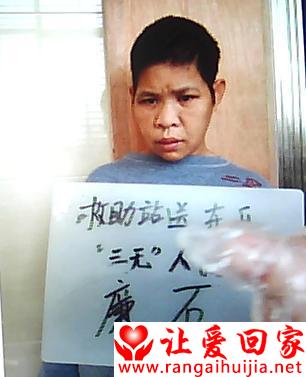 救助站送
"三无"人
石
让爱回家
www.rangaihuijia.net